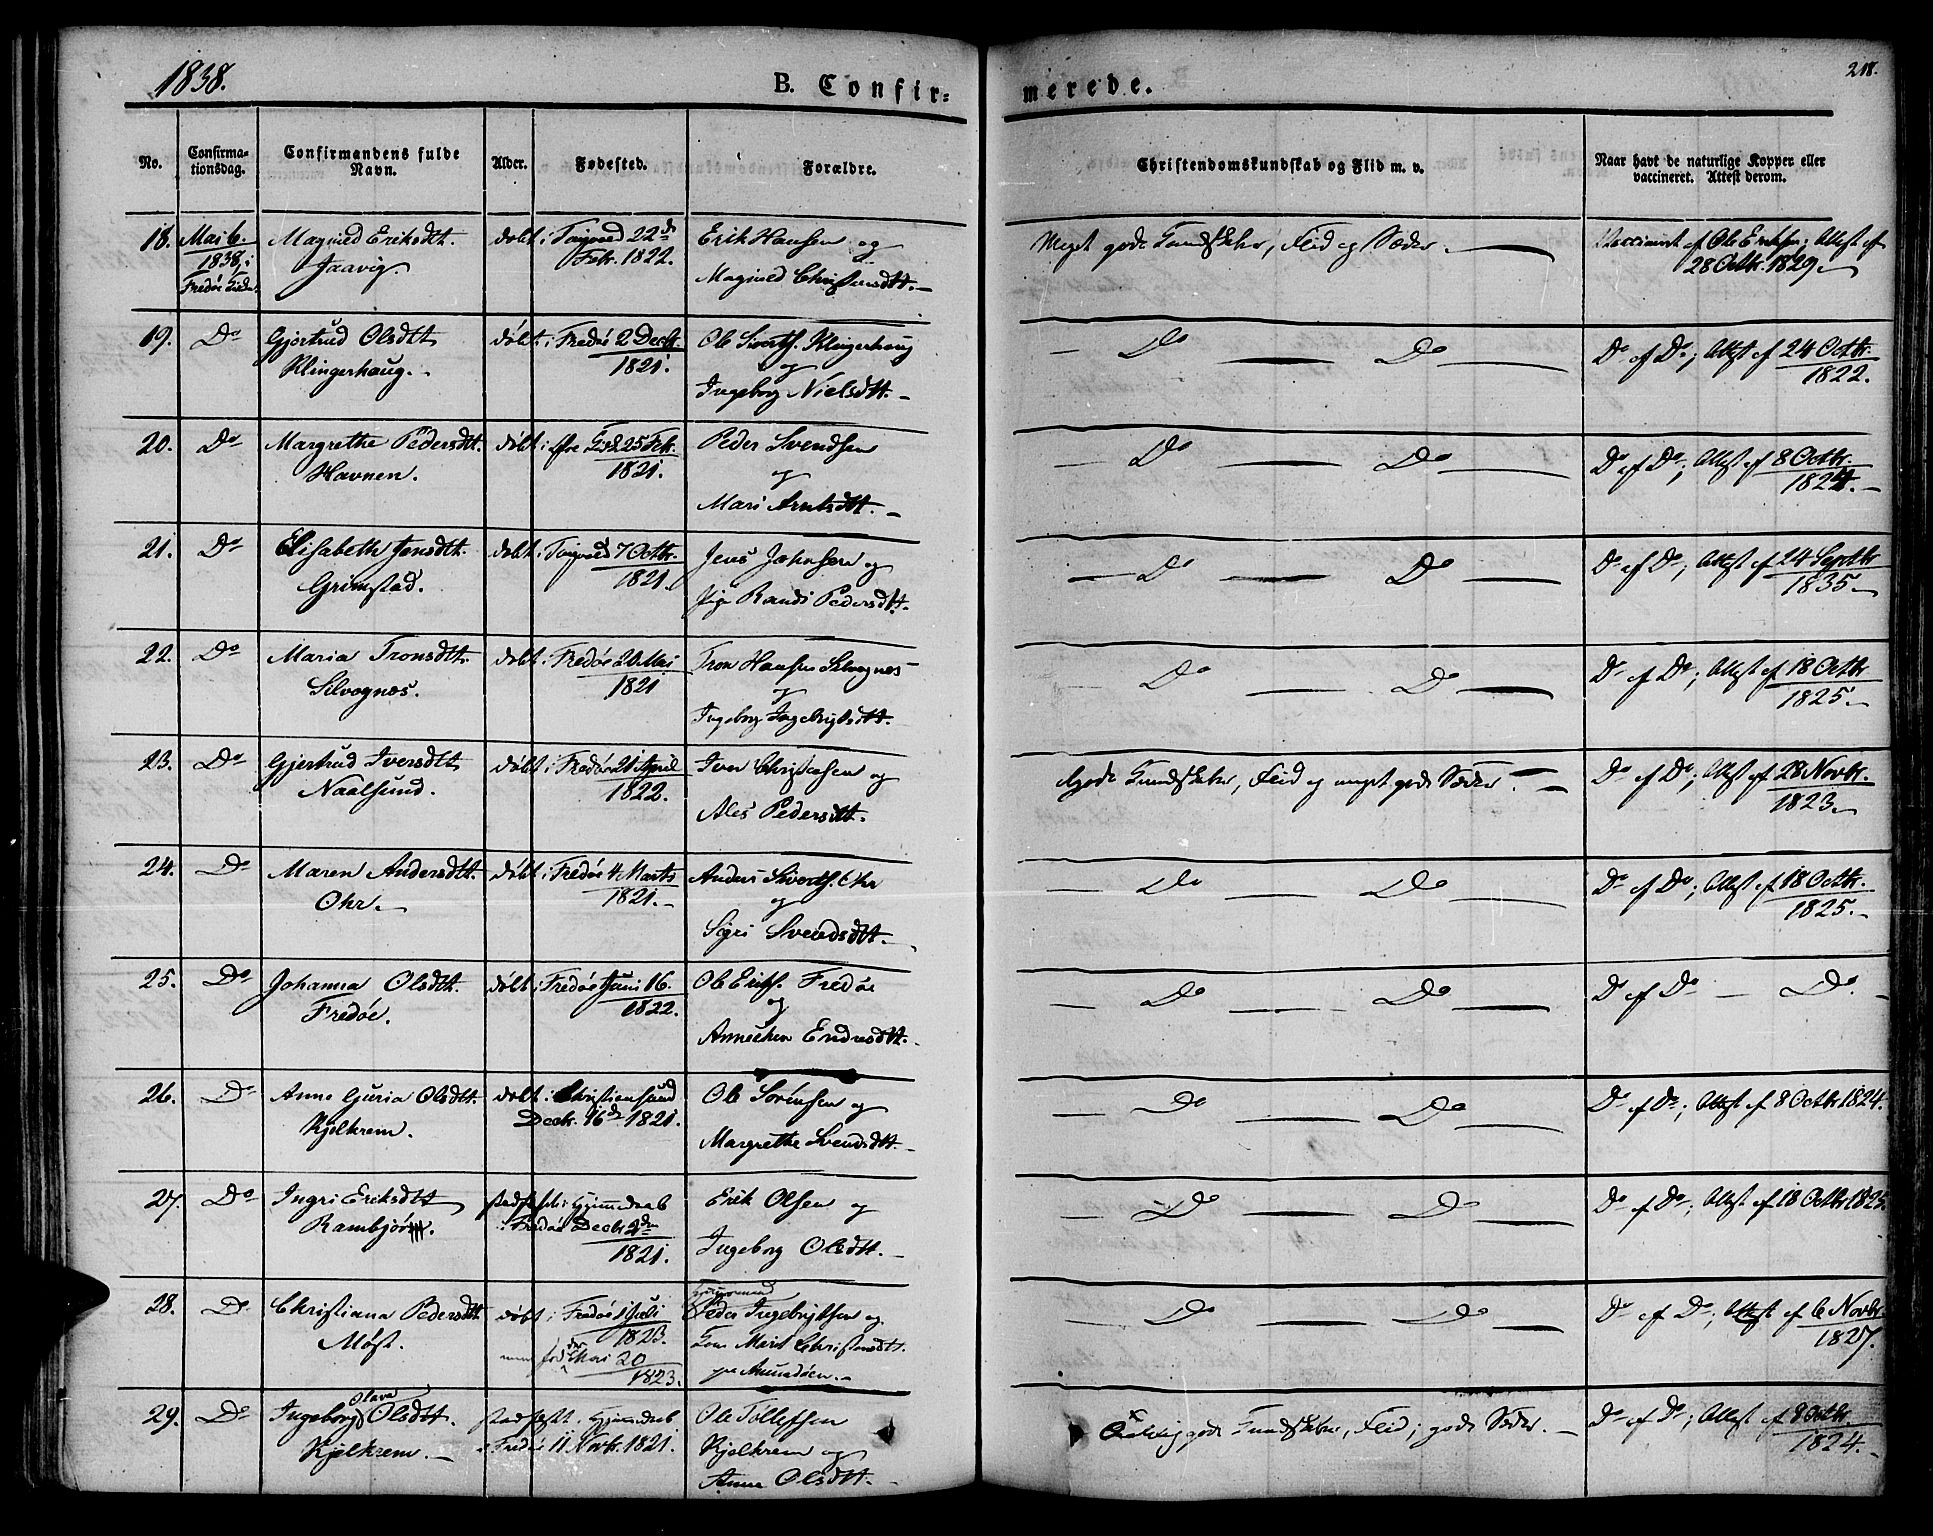 1838.
B. Confir-
merede.
218.
No.
Confirma-
tionsdag.
Confirmandens fulde
Navn.
Alder.
Fødested.
Forældre.
Christendomskundskab og Flid m. v.
Naar havt de naturlige Kopper eller
vaccineret. Attest derom.
18. Mai 6. Magnild Eriksdtt. døbt i Tingvold 22de Erik Hansen og Meget gode Kundskaber, Flid og Sæder. Vaccineret af Ole Eriksen; Attest af
1838, i Jaavig. Febr. 1822. Magnild Christensdtt. 28 Octbr. 1829.
Fredøe Kirke.
19. Do Gjertrud Olsdtt døbt i Fredøe 2 Decbr. Ole Siverts. Klingerhaug Do Do Do af Do; Attest af 24 Octbr.
Klingerhaug. 1821. og 1822.
Ingeborg Nielsdtt.
20. Do Margrethe Pedersdtt. døbt i 25 Febr. Peder Svendsen Do Do Do af Do; Attest af 8 Octbr.
Havnen. 1821. og 1824.
Mari Arntsdtt.
21. Do Elisabeth Jensdtt. døbt i Tingvold 7 Octbr. Jens Johnsen og Do Do Do af Do; Attest af 24 Septbr
Grimstad. 1821. Randi Pedersdtt. 1835.
22. Do Maria Tronsdtt. døbt i Fredøe 20 Mai Tron Hansen Silvognæs Do Do Do af Do; Attest af 18 Octbr
Silvognæs. 1821 og 1825.
Ingeborg Ingebrigtsdtt.
23. Do Gjertrud Iversdtt døbt i Fredøe 21 April Iver Christensen og Gode Kundskaber, Flid og meget gode Sæder. Do af Do; Attest af 28 Novbr.
Naalsund. 1822. Ales Pedersdtt. 1823.
24. Do Maren Andersdtt. døbt i Fredøe 4 Marts Anders Siverts. Ohr Do Do Do af Do; Attest af 18 Octbr.
Ohr. 1821. og 1825.
Sigri Svendsdtt.
25. Do Johanna Olsdtt. døbt i Fredøe Juni 16. Ole Eriks. Fredøe Do Do Do af Do Do.
Fredøe. 1822. og
Annechen Endresdtt.
26. Do Anne Guria Olsdtt. døbt i Christiansund Ole Sørensen og Do Do Do af Do; Attest af 8 Octbr 1824.
Kjelkrem. Decbr. 16de 1821. Margrethe Svendsdtt.
27. Do Ingri Eriksdtt stadfæstet Hjemmedaab Erik Olsen og Do Do Do af Do; Attest af 18 Octbr 1825.
Rambjør. i Fredøe Decbr. 2den 1821. Ingeborg Olsdtt.
28. Do Christiana Pedersdtt døbt i Fredøe 1 Juli Peder Ingebrigtsen og Do Do Do af Do; Attest af 6 Novbr
Møst. 1823. Mari Christensdtt. 1827.
men fød Mai 20
1823.
29. Do Ingeborg Olava Olsdtt. stadfæstet Hjemmedaab Ole Tollefsen gode Kundskaber, Flid; gode Sæder. Do af Do; Attest af 8 Octbr.
Kjelkrem. i Fredøe 11 Novbr. 1821. Kjelkrem og 1824.
Anne Olsdtt.